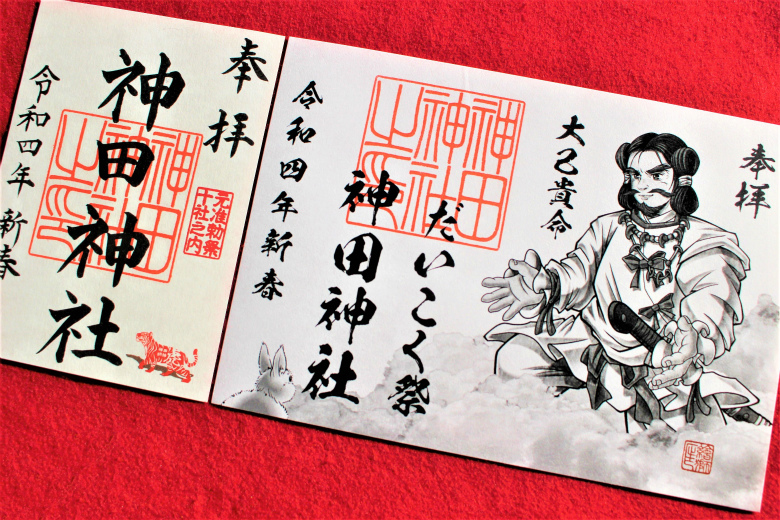 奉拝
神田神社
令和四年 新春
元准勅祭
十社之内
神田
神社
之印
奉拝
大己貴命
だいこく祭
神田神社
令和四年新春
神田
神社
之印